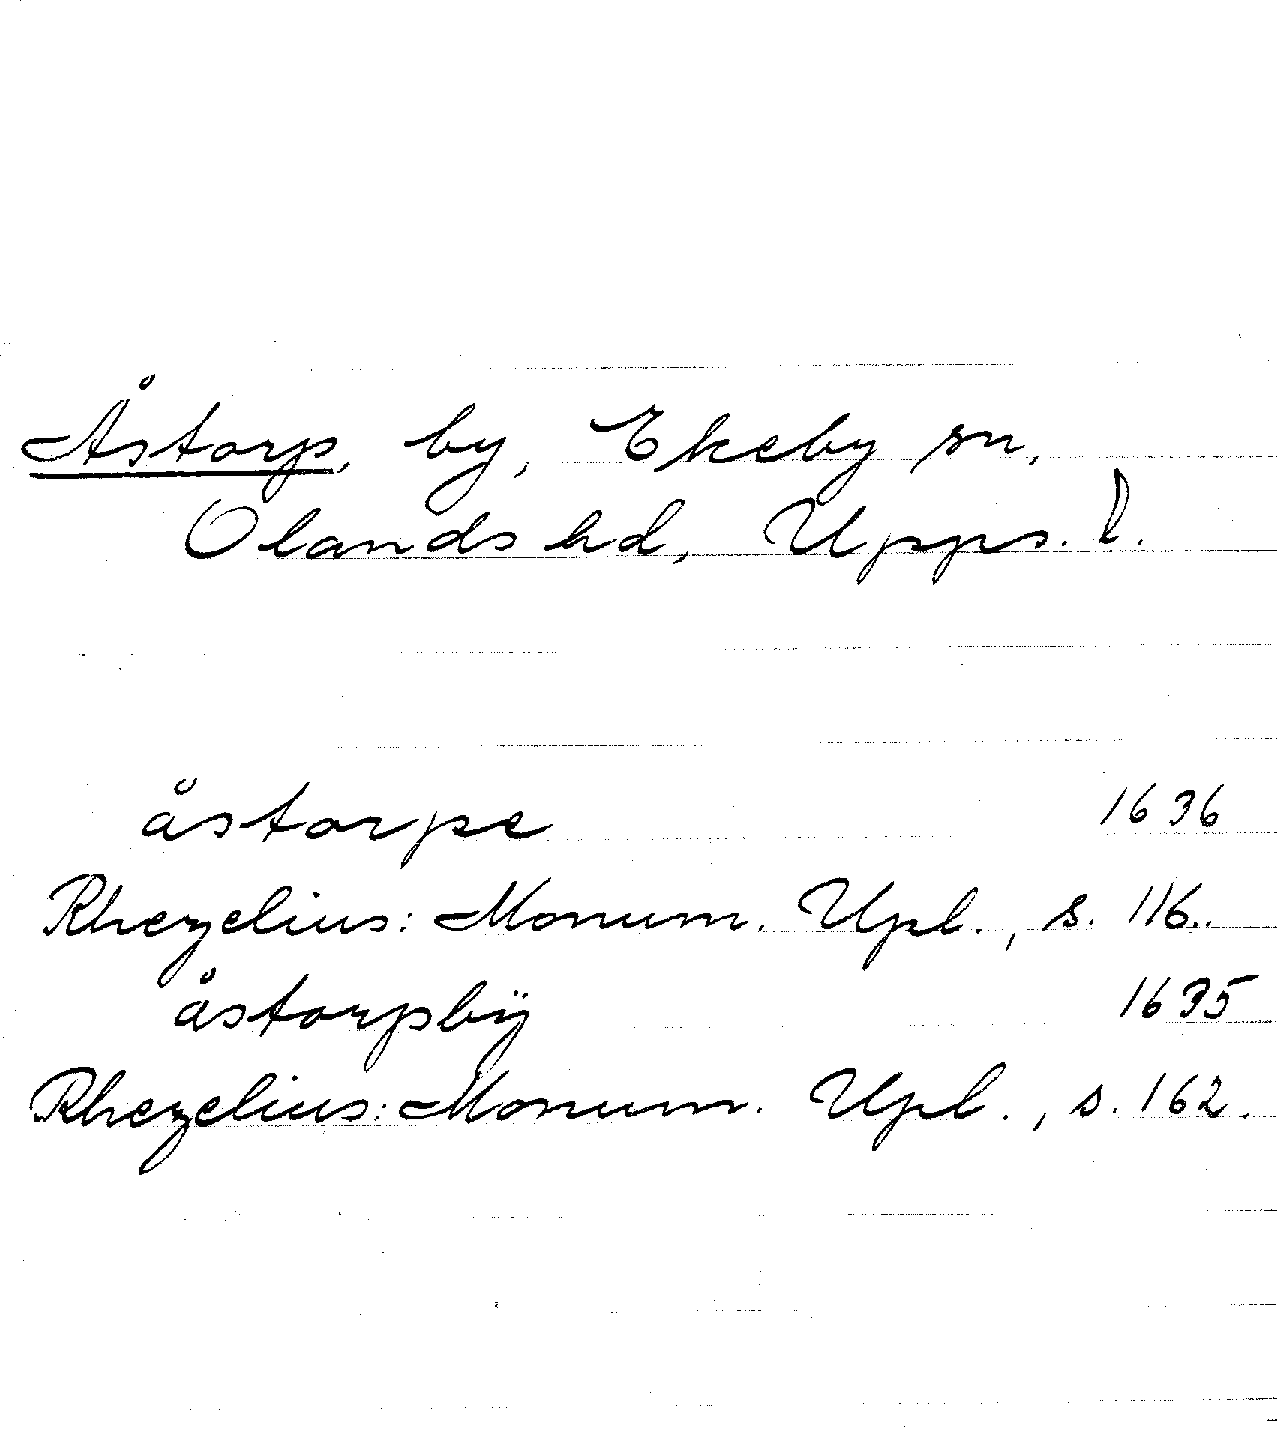 Åstorp, by, Ekeby sn,
Olands hd, Upps. l.
åstorpe 1636
Rhezelius: Monum. Upl., s. 116.
åstorpbÿ 1635
Rhezelius: Monum. Upl., s. 162.